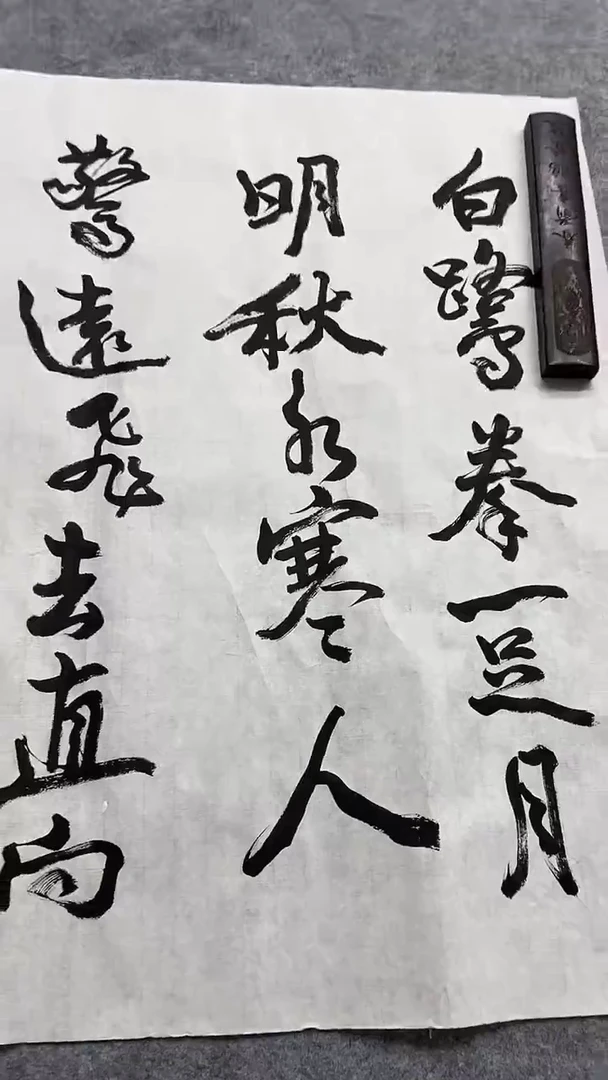 白鹭拳一足月
明秋水寒人
驚遠飛去直向